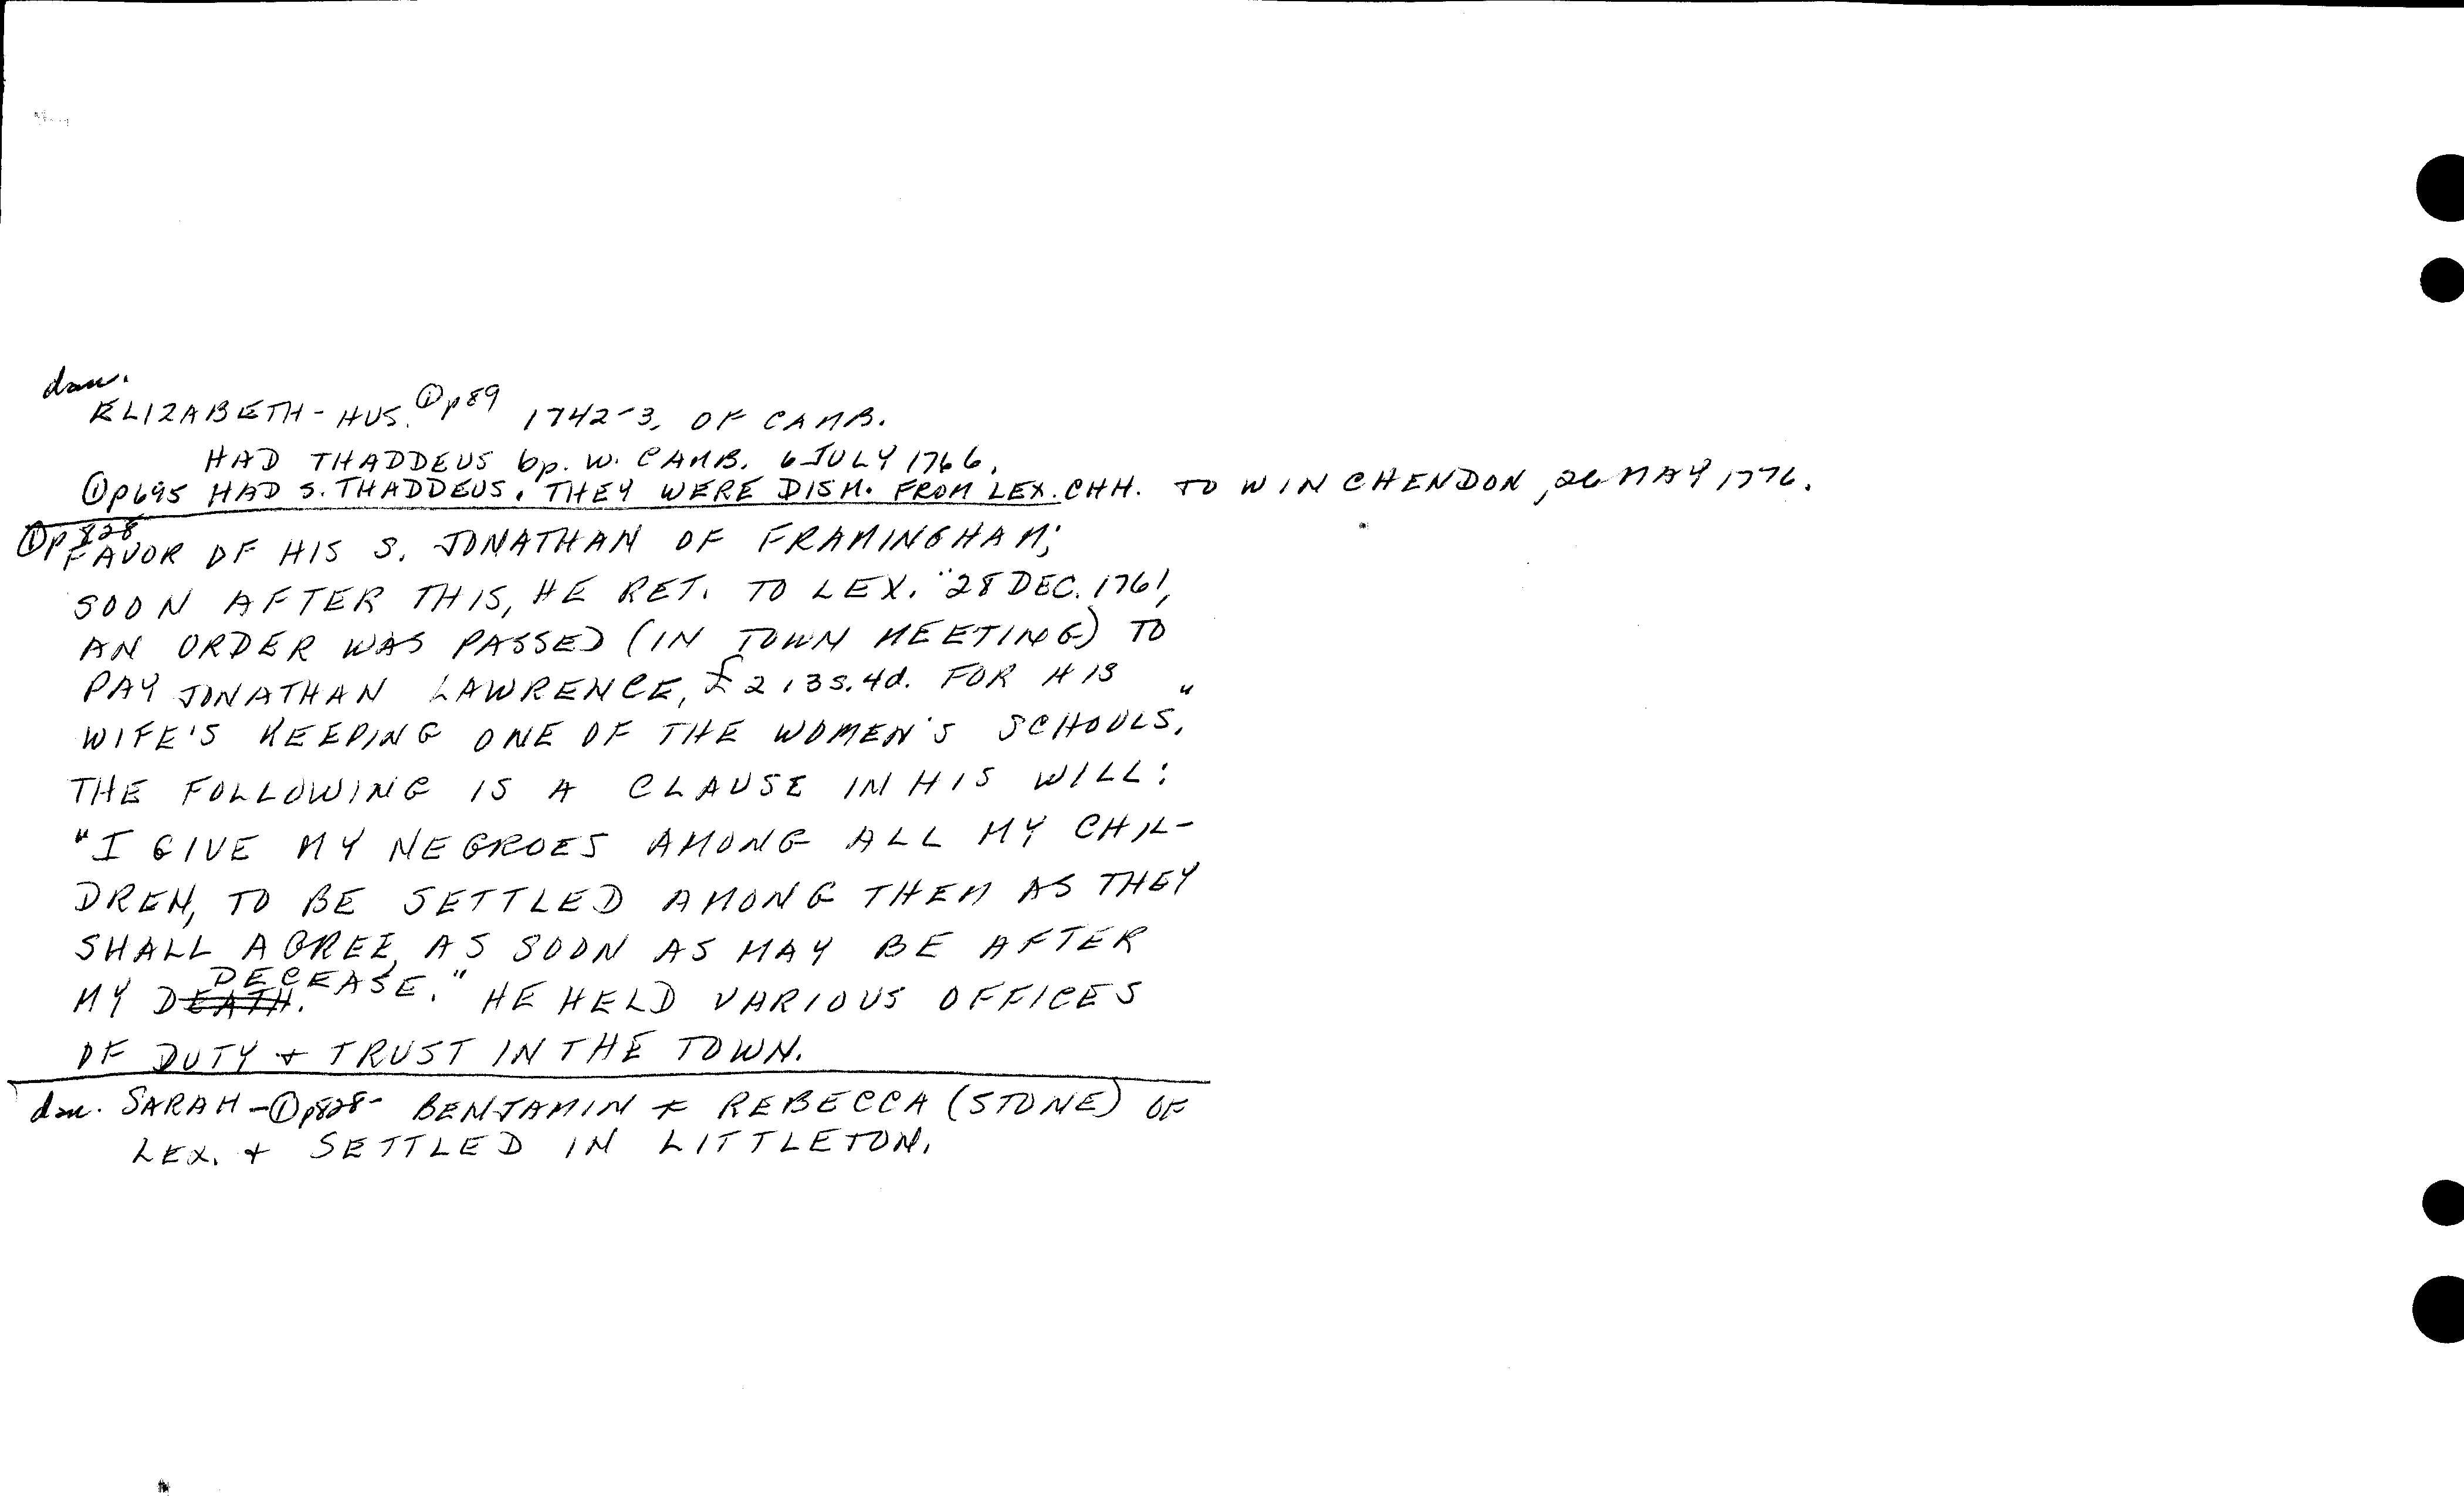 dau.
ELIZABETH - HUS. ①p89 1742-3, OF CAMB.
HAD THADDEUS bp. W. CAMB. 6 JULY 1766.
①p695 HAD S. THADDEUS. THEY WERE DISM. FROM LEX. CHH. TO WINCHENDON, 26 MAY 1776.
①p828
FAVOR OF HIS S. JONATHAN OF FRAMINGHAM;
SOON AFTER THIS, HE RET. TO LEX. "28 DEC. 1761,
AN ORDER WAS PASSED (IN TOWN MEETING) TO
PAY JONATHAN LAWRENCE, £2 13s. 4d. FOR HIS
WIFE'S KEEPING ONE OF THE WOMEN'S SCHOOLS."
THE FOLLOWING IS A CLAUSE IN HIS WILL:
"I GIVE MY NEGROES AMONG ALL MY CHIL-
DREN, TO BE SETTLED AMONG THEM AS THEY
SHALL AGREE, AS SOON AS MAY BE AFTER
MY DEATH. DECEASE." HE HELD VARIOUS OFFICES
OF DUTY + TRUST IN THE TOWN.
dau. SARAH - ①p828 - BENJAMIN + REBECCA (STONE) OF
LEX. + SETTLED IN LITTLETON.